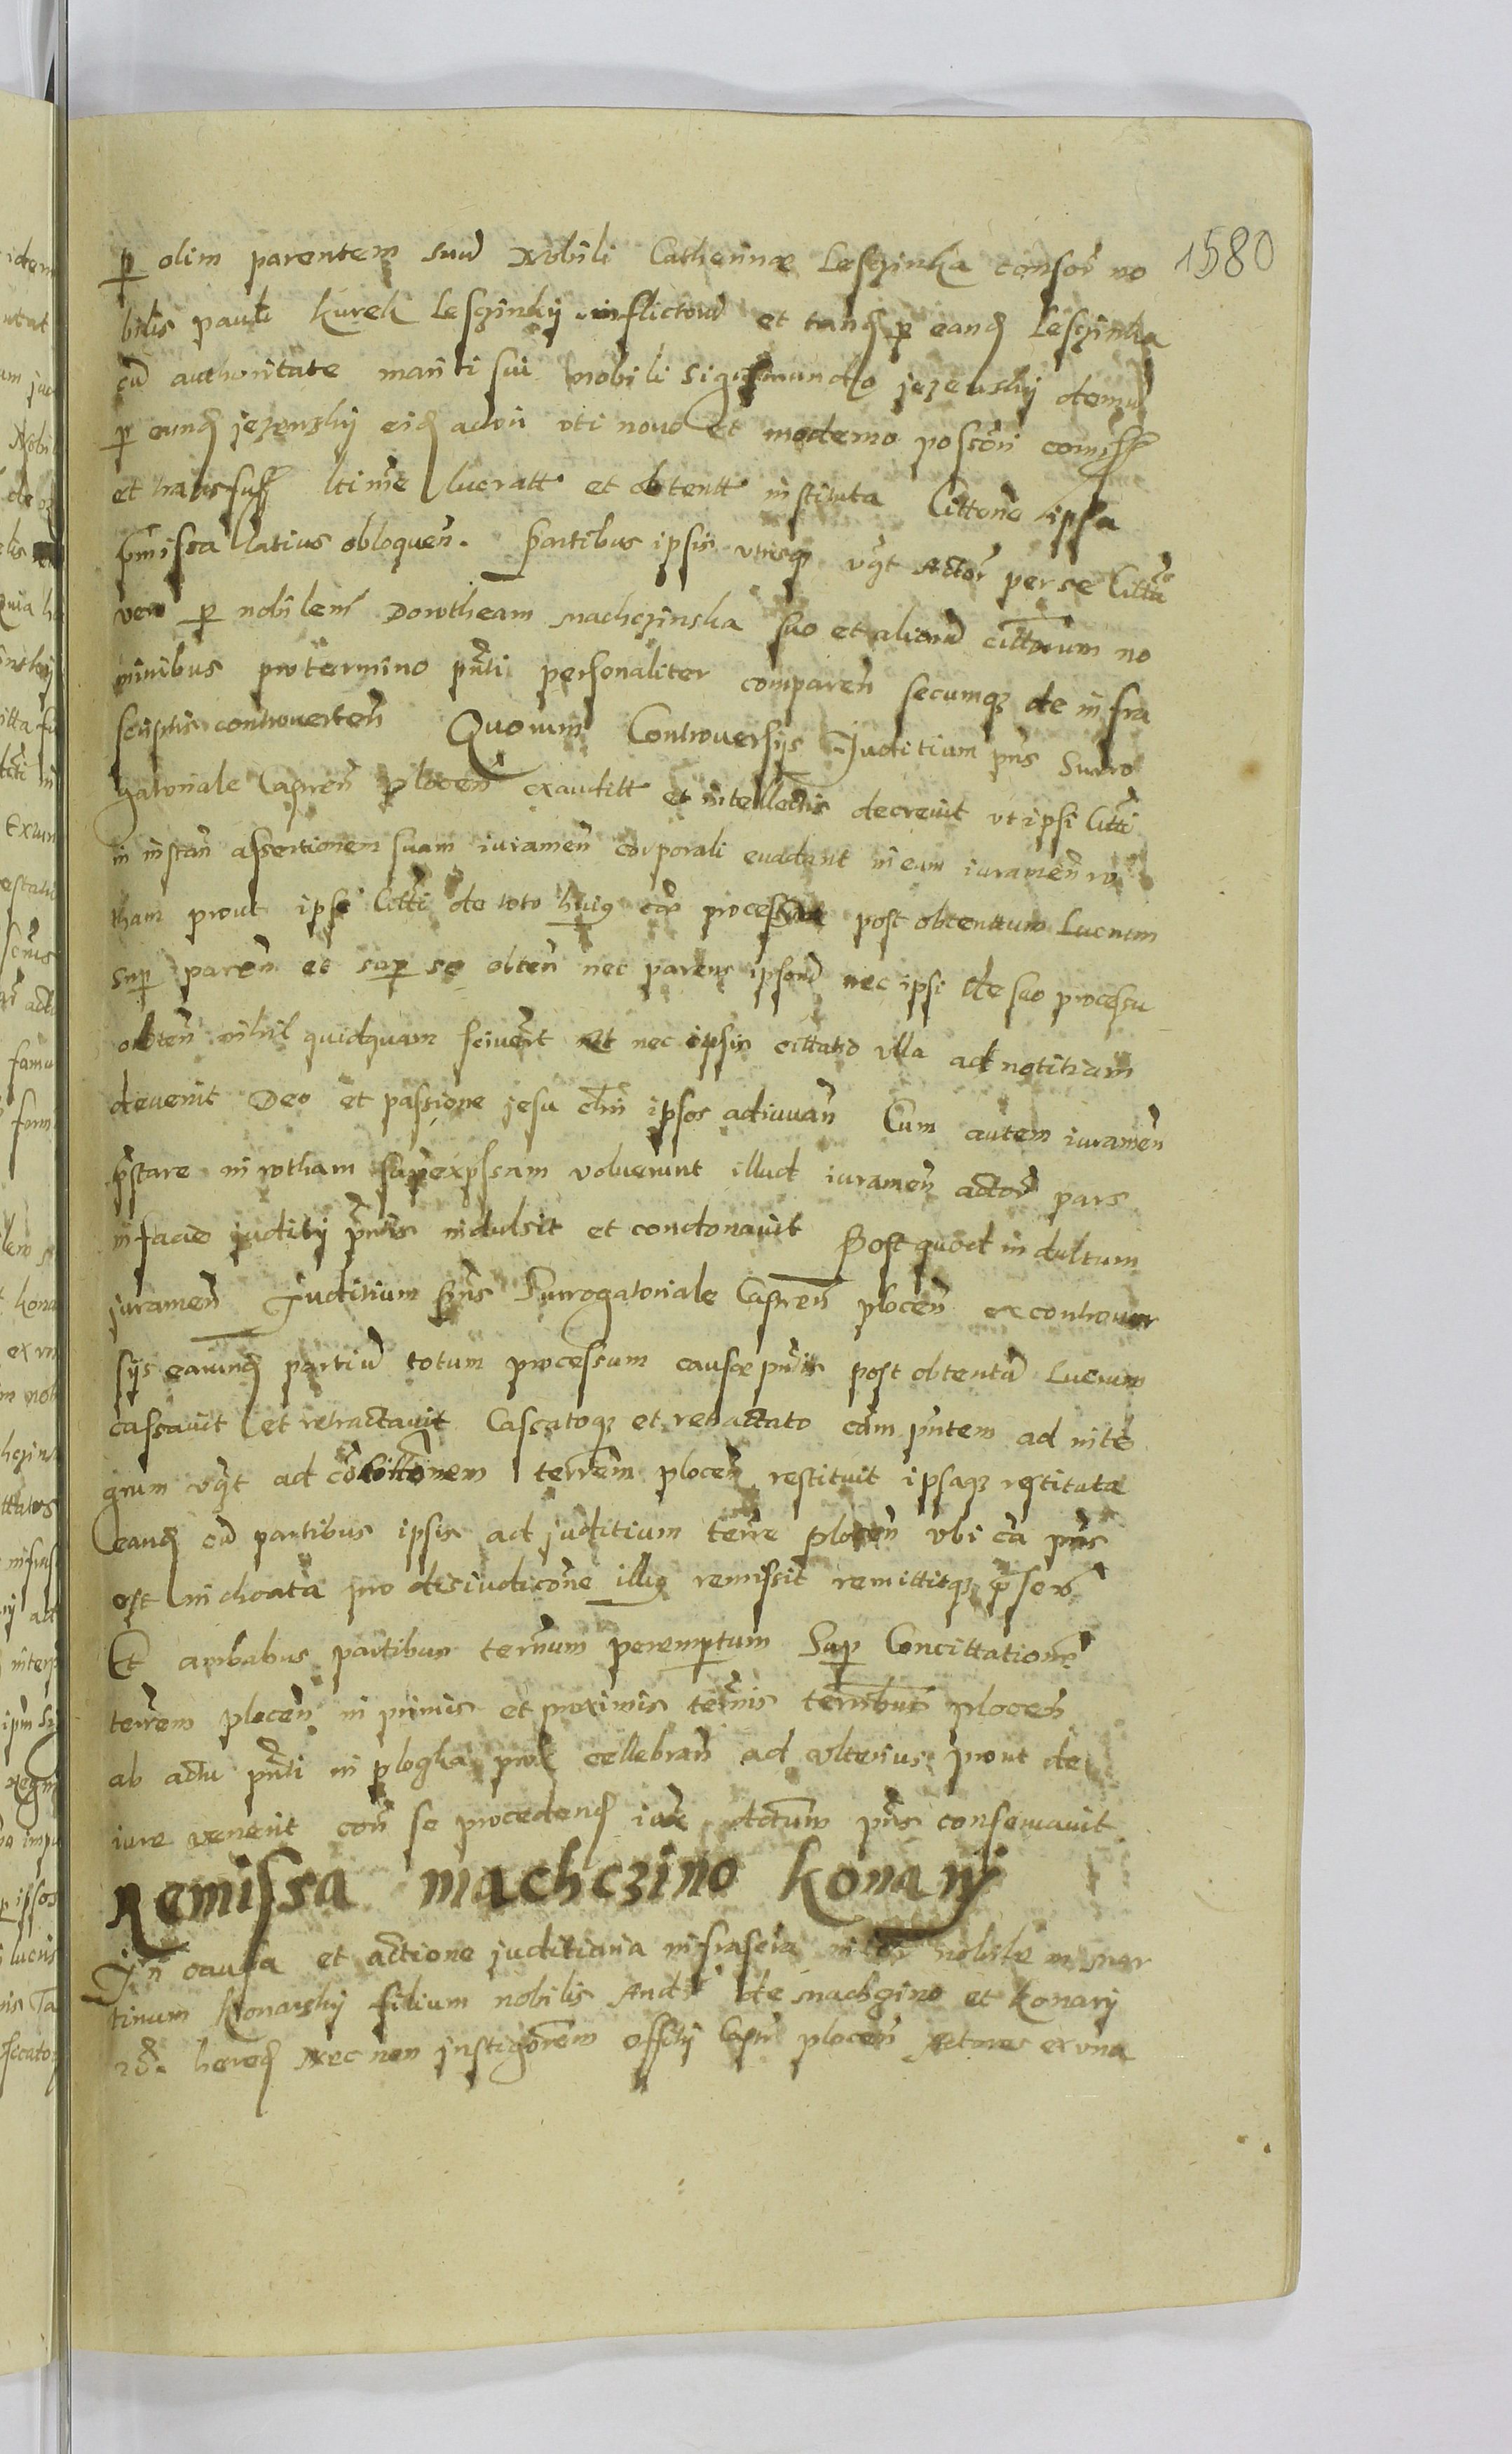 1580
p olim parentem suu Nobili Catherinæ Lesczinska consor no
bilis pauli kurek Lesczinskij inflictoru et tanq p eand Lesczinska
cu authoritate mariti sui nobili Sigismundo jezewskij demu
p eund jezewskij eid actori vti novo et moderno possori comiss
et transfuss ltime lucratt et obtentt instituta Cittone ipsa
pmissa latius obloquen. Partibus ipsis vtrisq vqt Actor per se Citta
vero p nobilem Dorotheam machczinska suo et alioru cittorum no
minibus pro termino pnti personaliter comparen secumq de infra
scriptis controverten Quorum Controversijs Juditium pns Surro
gatoriale Castren plocen exauditt et intellectis decrevit vt ipsi Citti
in instan assertionem suam iuramen corporali evadant in eum iuramen ro
tham prout ipsi Citti de toto huig cæ processu post obtentum Lucrum
sup paren et sup se obten nec parens ipsoru nec ipsi de suo processu
obten nihil quidquam sciverut et nec ipsis cittatio vlla ad notitiam
devenit Deo et passione jesu chri ipsos adiuuan Cum autem iuramen
pstare in rotham supexpssam voluerunt illud iuramen actor pars
in facie juditij pntis indulsit et condonavit Post quod indultum
juramen Juditium pns Surrogatoriale Castren plocen ex controver
sijs earund partiu totum processum causæ pntis post obtentu Lucrum
cassavit et retractavit Cassatoq et retractato eam pntem ad inte
grum vqt ad cocittonem terrem plocen restituit ipsaq restituta
eand cu partibus ipsis ad juditium terre plocen vbi ca pns
est inchoata pro disiudicone illiq remissit remittitq p pser
Et ambabus partibus terminum peremptum Sup Concittatione
terrem plocen in primis et proximis terminis terribus plocen
ab actu pnti in plogka prox cellebran ad vlterius prout de
iure venerit con se procedend iure dictum pns conservavit
Remissa machczino konarij
In causa et actione juditiaria infrascra inter nobilem mar
tinum Konarskij filium nobilis Andr de machczino et konarij
hered Nec non justigorem offitij Castr plocen Actores ex vna